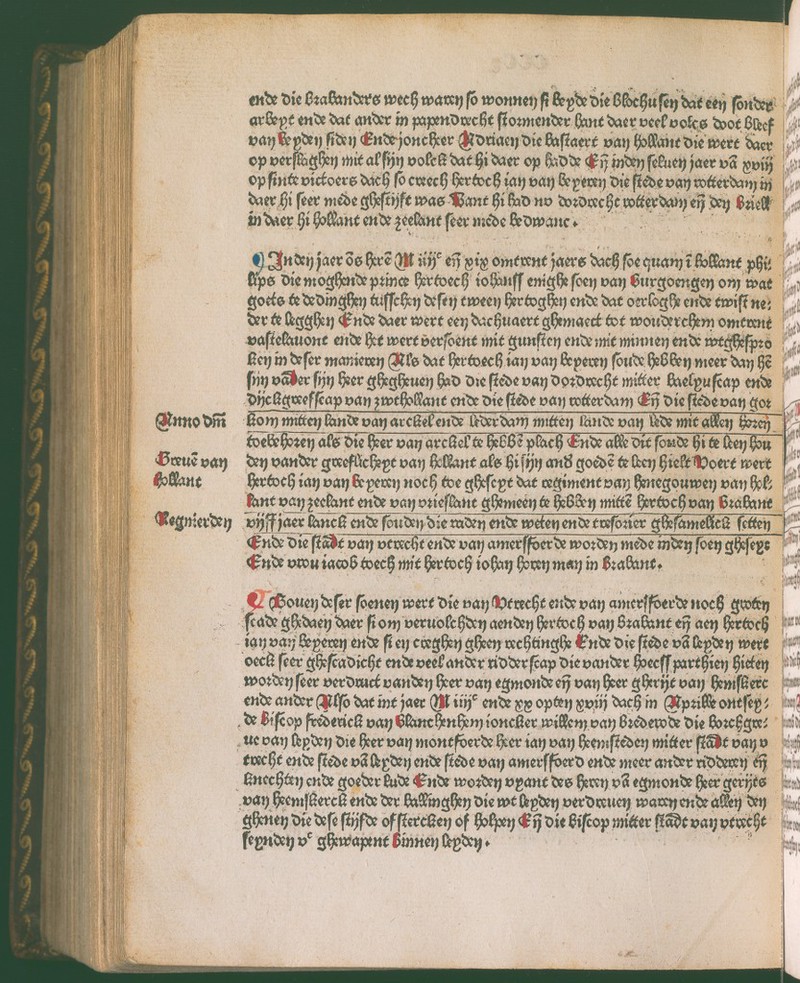 ende die brabanders wech waren so wonnen si beyde die blochusen dat een sonder
arbeyt ende dat ander in papendrecht stormender hant daer veel volcs doot bleef
van beyden siden Ende joncheer Adriaen die bastaert van hollant die wert daer
op verslaghen mit al sijn volck dat hi daer op hadde Eñ inden seluen jaer vā xviij
op sinte victoers dach so creech hertoch ian van beyeren die stede van rotterdam in
daer hi seer mede ghestijft was Want hi had nu dordrecht rotterdam eñ den briell
in daer hi hollant ende zeelant seer mede bedwanc.
Inden jaer ōs herē M iiijᶜ eñ xix omtrent jaers dach soe quam ī hollant phi-
lips die moghende prince hertoech iohanss enighe soen van burgoengen om wat
goets te dedinghen tusschen desen tween hertoghen ende dat oerloghe ende twist ne-
der te legghen Ende daer wert een dachuaert ghemaect tot wouderchem omtrent
vastelauont ende het wert versoent mit gunsten ende mit minnen ende wtghespro
ken in deser manieren Als dat hertoech ian van beyeren soude hebben meer dan hē
sijn vāder sijn heer ghegheuen had die stede van dordrecht mitter baelyuscap ende
dijckgreefscap van zwthollant ende die stede van rotterdam Eñ die stede van gor
Anno dm̄ kom mitten lande van arckel ende lederdam mitten lande van lede mit allen horen
toebehoren als die heer van arckel te hebbē plach Ende alle dit soude hi te leen hou
Greuē van den vander greeflicheyt van hollant als hi sijn and goedē te leen hielt Voert wert
hollant hertoch ian van beyeren noch toe gheseyt dat regiment van henegouwen van hol-
lant van zeelant ende van vrieslant ghemeen te hebben mittē hertoch van brabant
Regnierden vijff jaer lanck ende souden die raden ende weten ende tresorier ghesamelick setten
Ende die stādt van vtrecht ende van amerssoerde worden mede inden soen gheseyt
Ende vrou iacob toech mit hertoch iohan horen man in brabant.
Bouen deser soenen wert die van Vtrecht ende van amerssoerde noch groten
scade ghedaen daer si om veruolchden aenden hertoch van brabant eñ aen hertoch
ian van beyeren ende si en creghen gheen rechtinghe Ende die stede vā leyden wert
oeck seer ghescadicht ende veel ander ridderscap die vander hoecss parthien hielen
worden seer verdruct vanden heer van egmonde eñ van heer gherijt van hemskerc
ende ander Also dat int jaer M iiijᶜ ende xx opten xviij dach in Aprille ontsey-
de biscop frederick van blanchenhem ioncker willem van brederode die borchgre-
ue van leyden die heer van montfoerde heer ian van heemsteden mitter stādt van v
trecht ende stede vā leyden ende stede van amerssoerd ende meer ander ridderen eñ
knechten ende goeder lude Ende worden vyant des heren vā egmonde heer gerijts
van heemskerck ende der ballinghen die wt leyden verdreuen waren ende allen den
ghenen die dese stijfde of stercken of holpen Eñ die biscop mitter stādt van vtrecht
seynden vᶜ ghewapent binnen leyden.